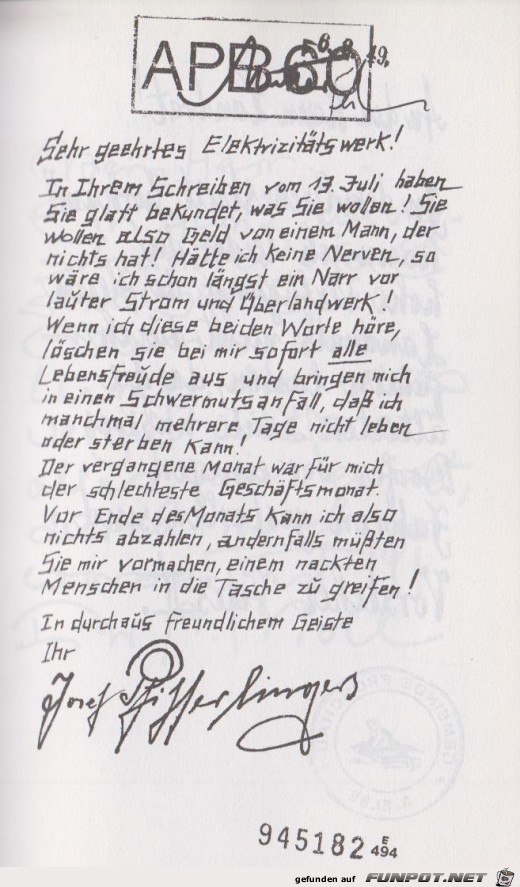 6. 8. 49.
APB 60
Sehr geehrtes Elektrizitätswerk!
In Ihrem Schreiben vom 13. Juli haben
Sie glatt bekundet, was Sie wollen! Sie
wollen also Geld von einem Mann, der
nichts hat! Hätte ich keine Nerven, so
wäre ich schon längst ein Narr vor
lauter Strom und Überlandwerk!
Wenn ich diese beiden Worte höre,
löschen sie bei mir sofort alle
Lebensfreude aus und bringen mich
in einen Schwermutsanfall, daß ich
manchmal mehrere Tage nicht leben
oder sterben kann!
Der vergangene Monat war für mich
der schlechteste Geschäftsmonat.
Vor Ende des Monats kann ich also
nichts abzahlen, andernfalls müßten
Sie mir vormachen, einem nackten
Menschen in die Tasche zu greifen!
In durchaus freundlichem Geiste
Ihr
Josef Pfifferlinger
945182 E 494
gefunden auf FUNPOT.NET